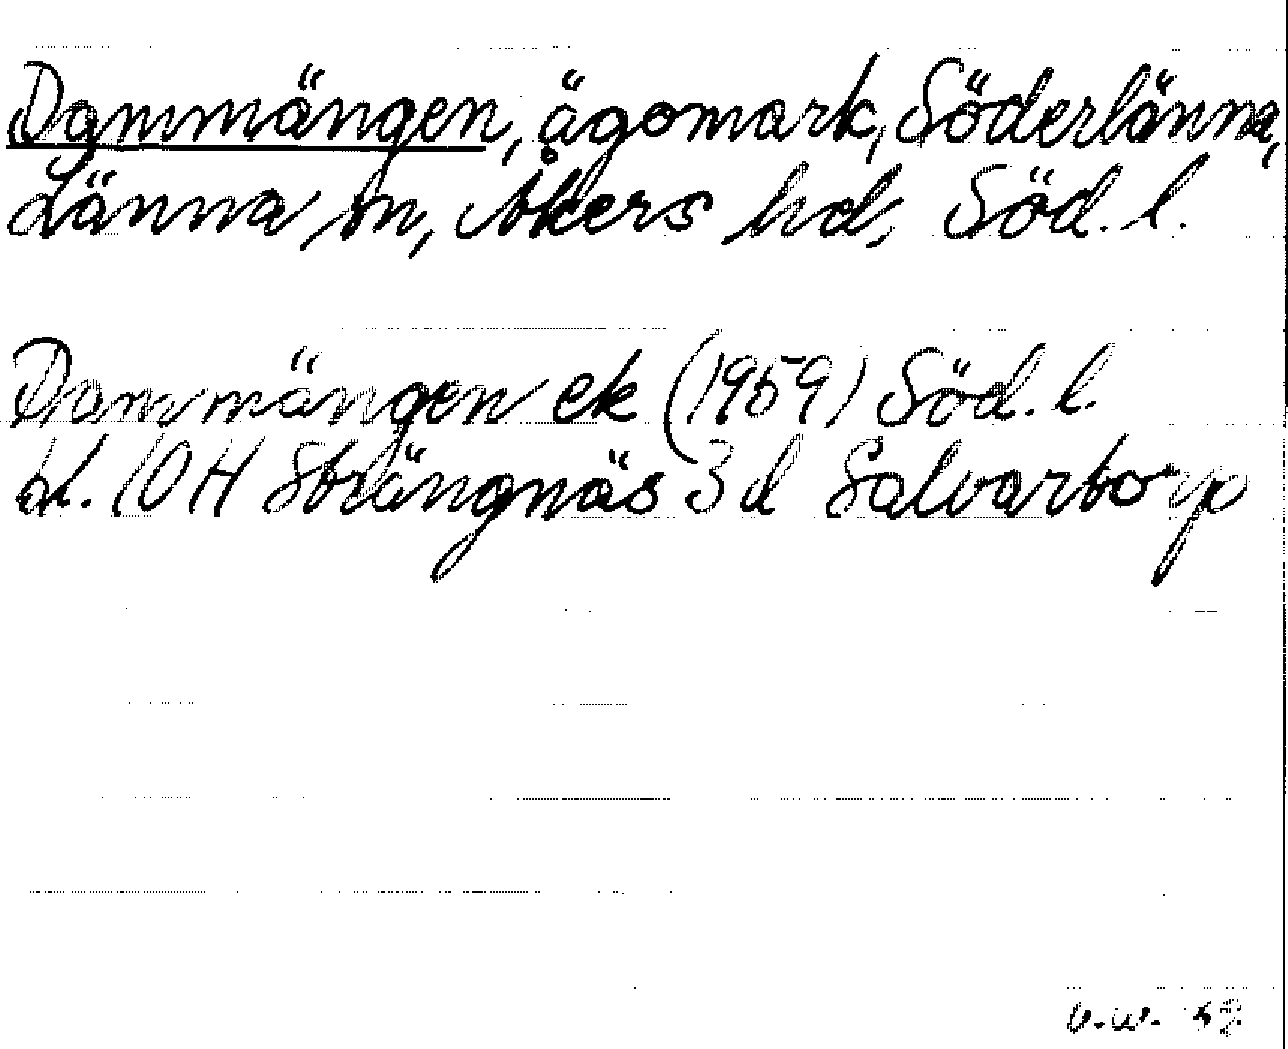 Dammängen, ägomark, Söderlänna,
Länna sn, Åkers hd, Söd. l.
Dammängen ek (1959) Söd. l.
bl. 10 H Strängnäs 3 d Salvartorp